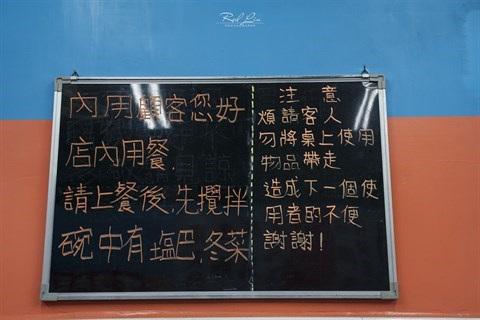 Red Lin
PHOTOGRAPHY
內用顧客您好
店內用餐,
請上餐後,先攪拌
碗中有塩巴,冬菜
注意
煩請客人
勿將桌上使用
物品帶走
造成下一個使
用者的不便
謝謝!